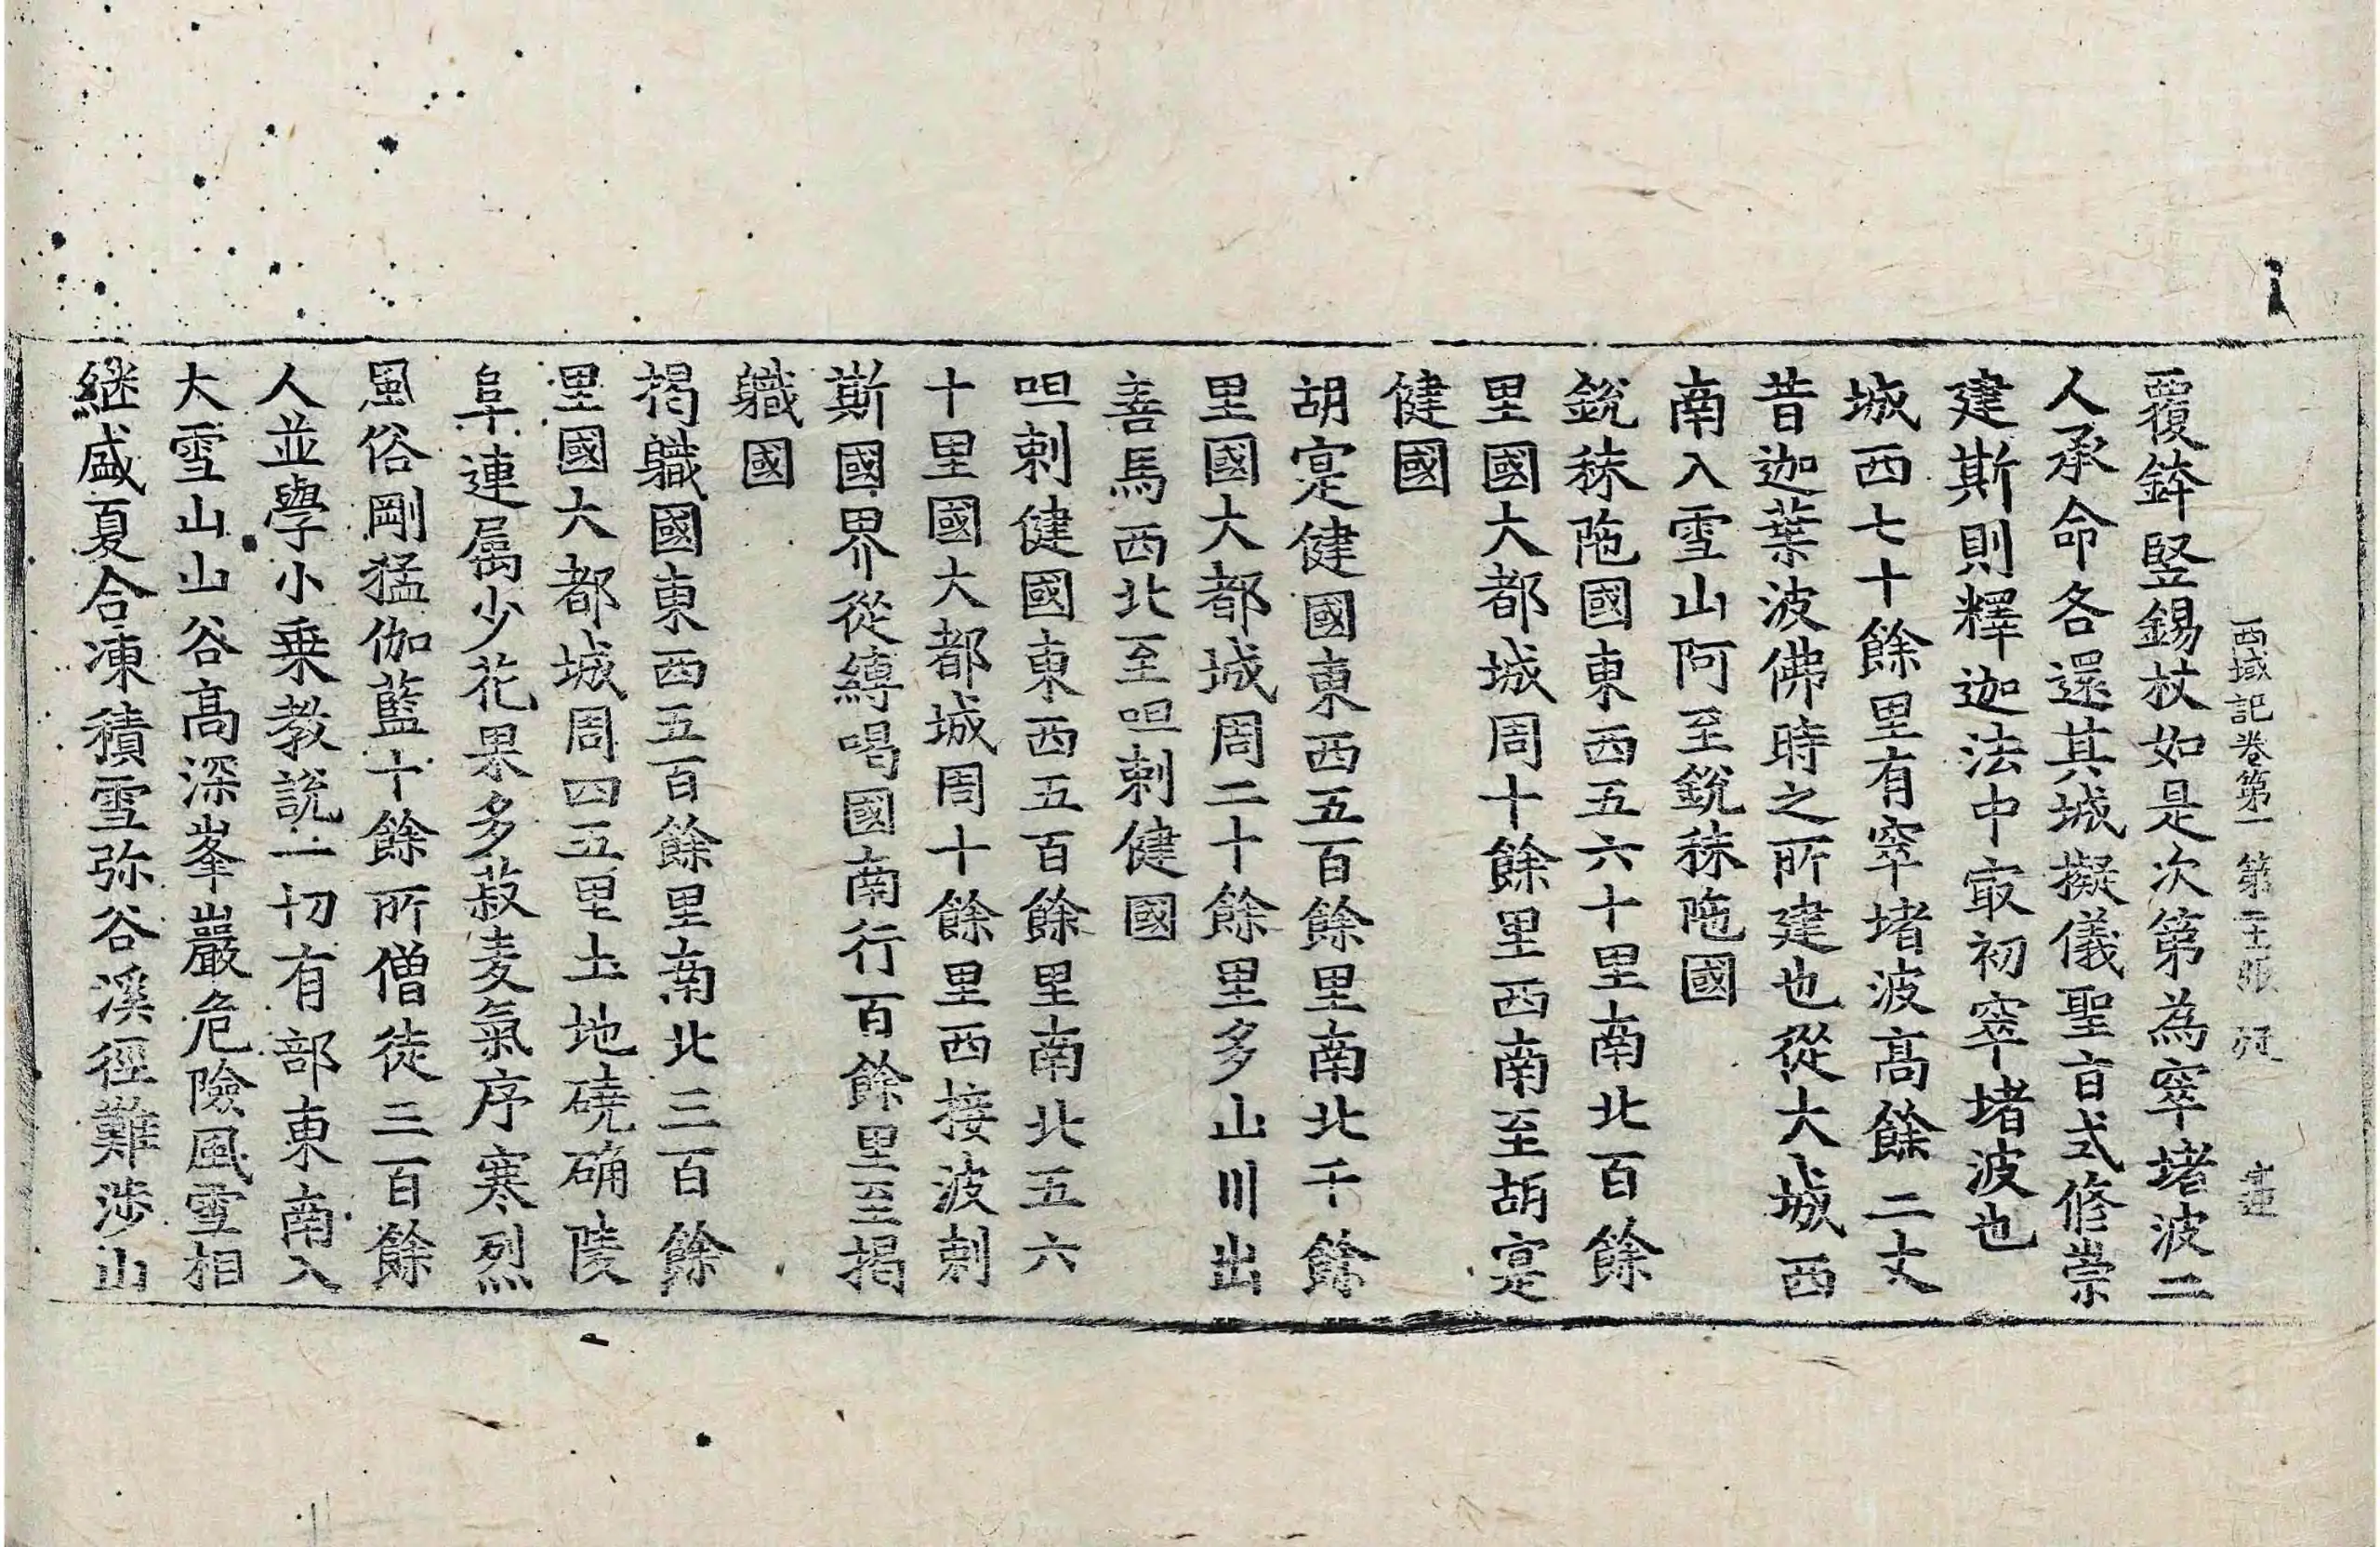 西域記卷第一 第二十張
覆鉢竪錫杖如是次第為窣堵波二
人承命各還其城擬儀聖旨式修崇
建斯則釋迦法中㝡初窣堵波也
城西七十餘里有窣堵波高餘二丈
昔迦葉波佛時之所建也從大城西
南入雪山阿至銳秣陁國
銳秣陁國東西五六十里南北百餘
里國大都城周十餘里西南至胡寔
健國
胡寔健國東西五百餘里南北千餘
里國大都城周二十餘里多山川出
善馬西北至呾剌健國
呾剌健國東西五百餘里南北五六
十里國大都城周十餘里西接波剌
斯國界從縛喝國南行百餘里至揭
職國
揭職國東西五百餘里南北三百餘
里國大都城周四五里土地磽确陵
阜連屬少花果多菽麦氣序寒烈
風俗剛猛伽藍十餘所僧徒三百餘
人並學小乗教說一切有部東南入
大雪山山谷高深峯巖危險風雪相
継盛夏合凍積雪弥谷溪徑難涉山